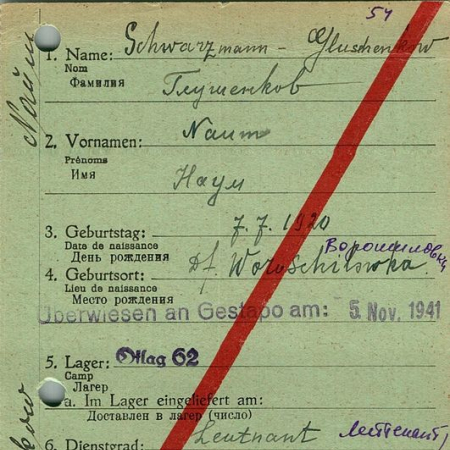 54
1. Name: Schwarzmann - Gluschenkow
Nom
Фамилия Глушенков
2. Vornamen: Naum
Prénoms
Имя Наум
3. Geburtstag: 7. 7. 1920
Date de naissance
День рождения
4. Geburtsort: Df. Woroschilowka
Lieu de naissance
Место рождения
Überwiesen an Gestapo am: 5. Nov. 1941
5. Lager: Oflag 62
Camp
Лагерь
a. Im Lager eingeliefert am:
Доставлен в лагерь (число)
6. Dienstgrad: Leutnant лейтенант